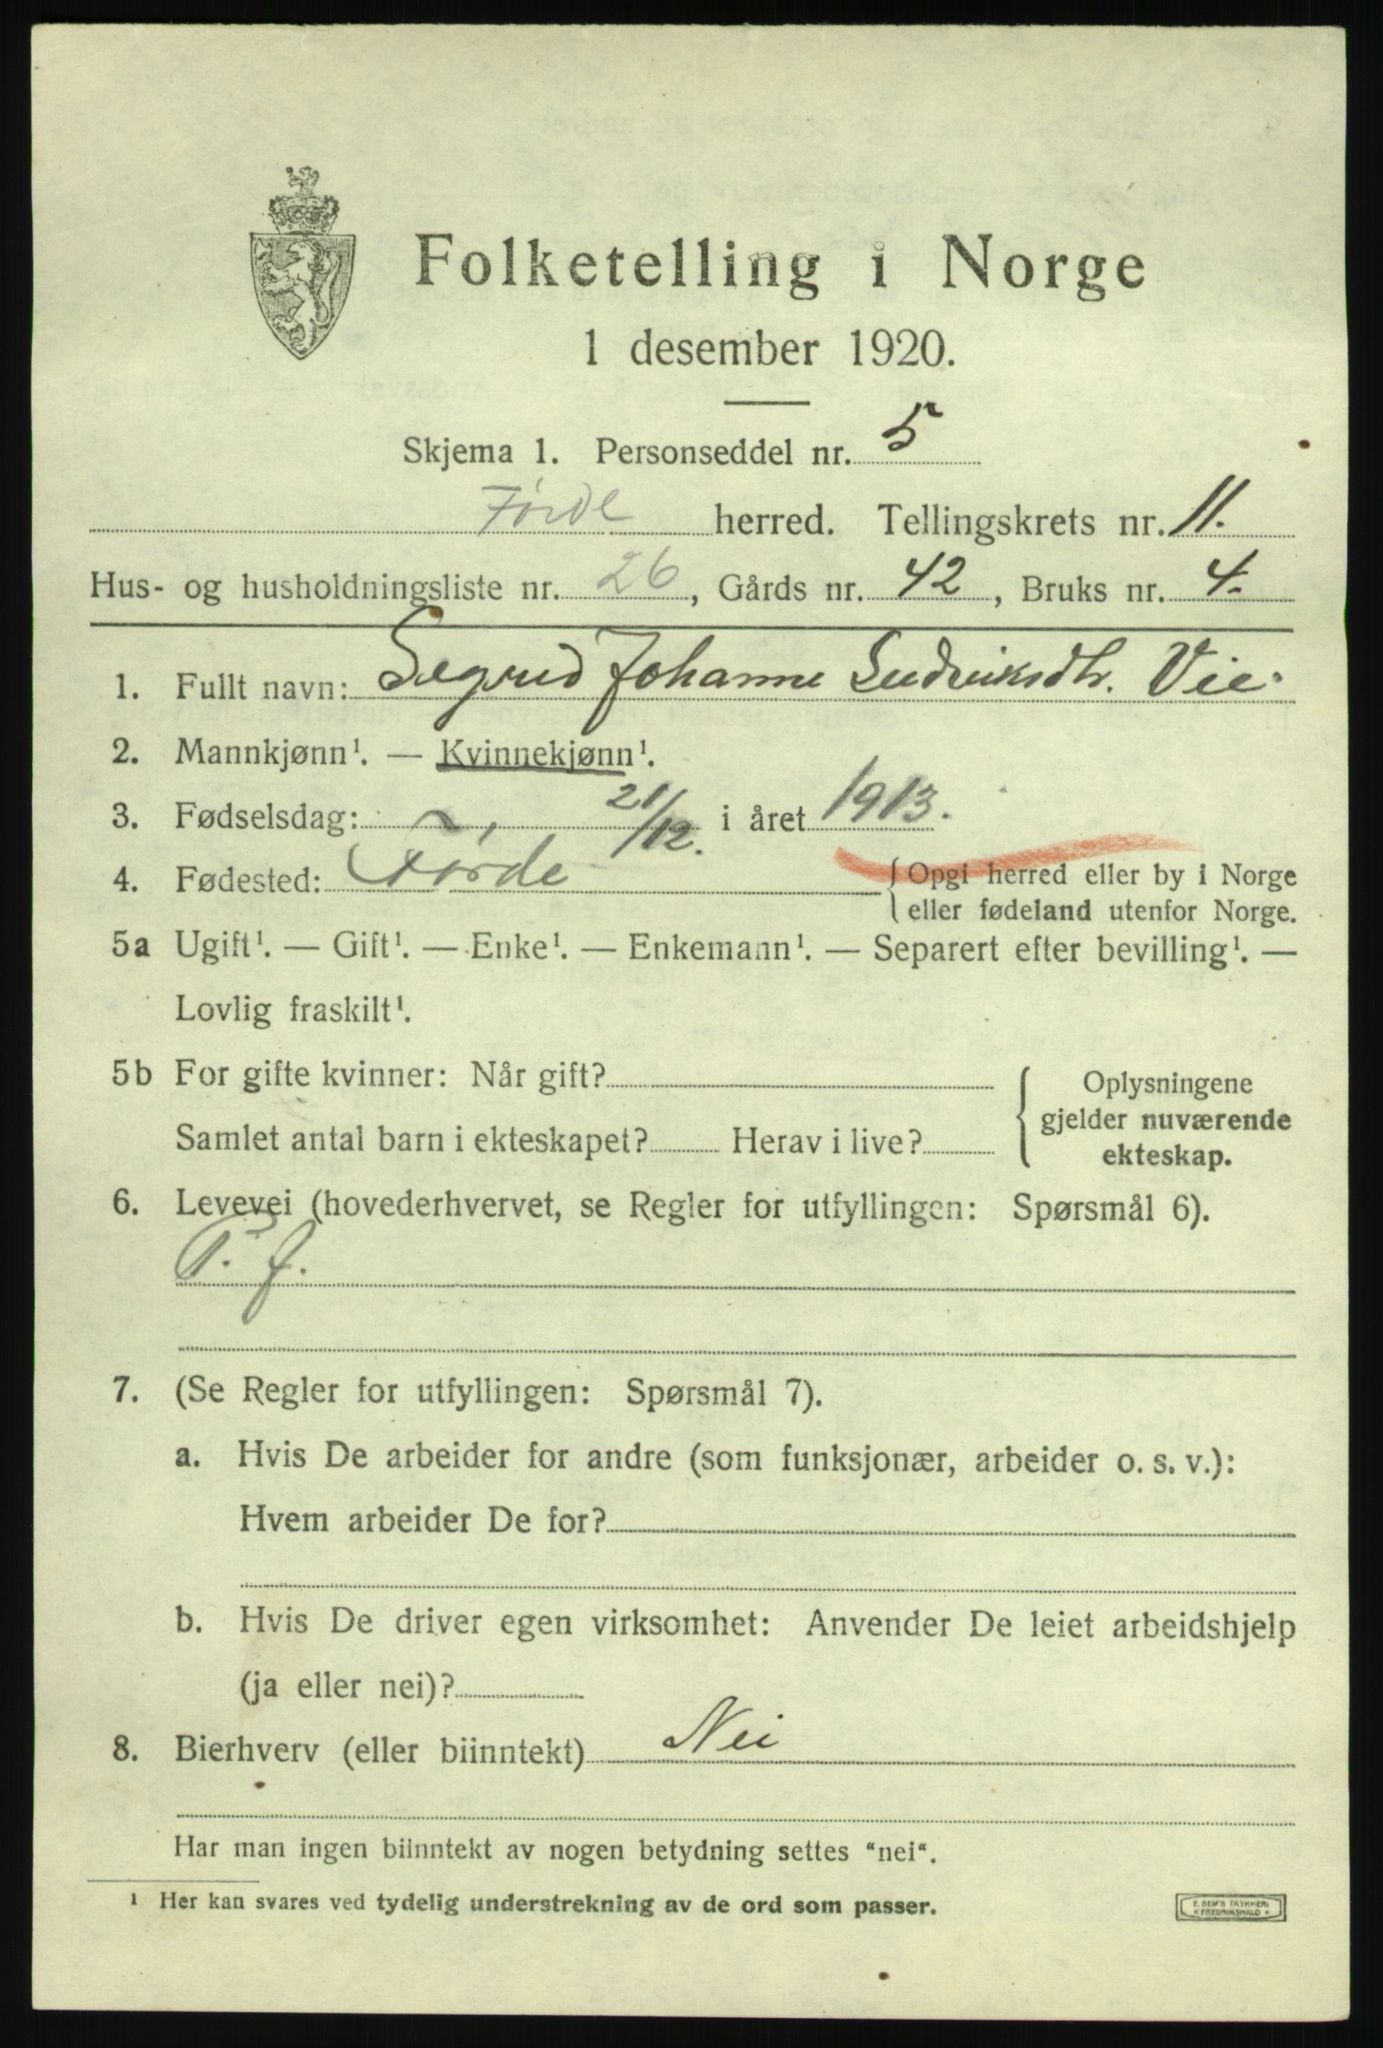 Folketelling i Norge
1 desember 1920.
Skjema 1. Personseddel nr. 5
Førde herred. Tellingskrets nr. 11.
Hus- og husholdningsliste nr. 26, Gårds nr. 42, Bruks nr. 4.
1. Fullt navn: Sigrid Johanne Ludviksdtr. Vie.
2. Mannkjønn¹. — Kvinnekjønn¹.
3. Fødselsdag: 21/12. i året 1913.
4. Fødested: Førde {Opgi herred eller by i Norge
eller fødeland utenfor Norge.
5a Ugift¹. — Gift¹. — Enke¹. — Enkemann¹. — Separert efter bevilling¹. —
Lovlig fraskilt¹.
5b For gifte kvinner: Når gift? { Oplysningene
gjelder nuværende
Samlet antal barn i ekteskapet? Herav i live?
ekteskap.
6. Levevei (hovederhvervet, se Regler for utfyllingen: Spørsmål 6).
P. f.
7. (Se Regler for utfyllingen: Spørsmål 7).
a. Hvis De arbeider for andre (som funksjonær, arbeider o. s. v.):
Hvem arbeider De for?
b. Hvis De driver egen virksomhet: Anvender De leiet arbeidshjelp
(ja eller nei)?
8. Bierhverv (eller biinntekt) Nei
Har man ingen biinntekt av nogen betydning settes "nei".
¹ Her kan svares ved tydelig understrekning av de ord som passer.
E. SEM'S TRYKKERI
FREDRIKSHALD